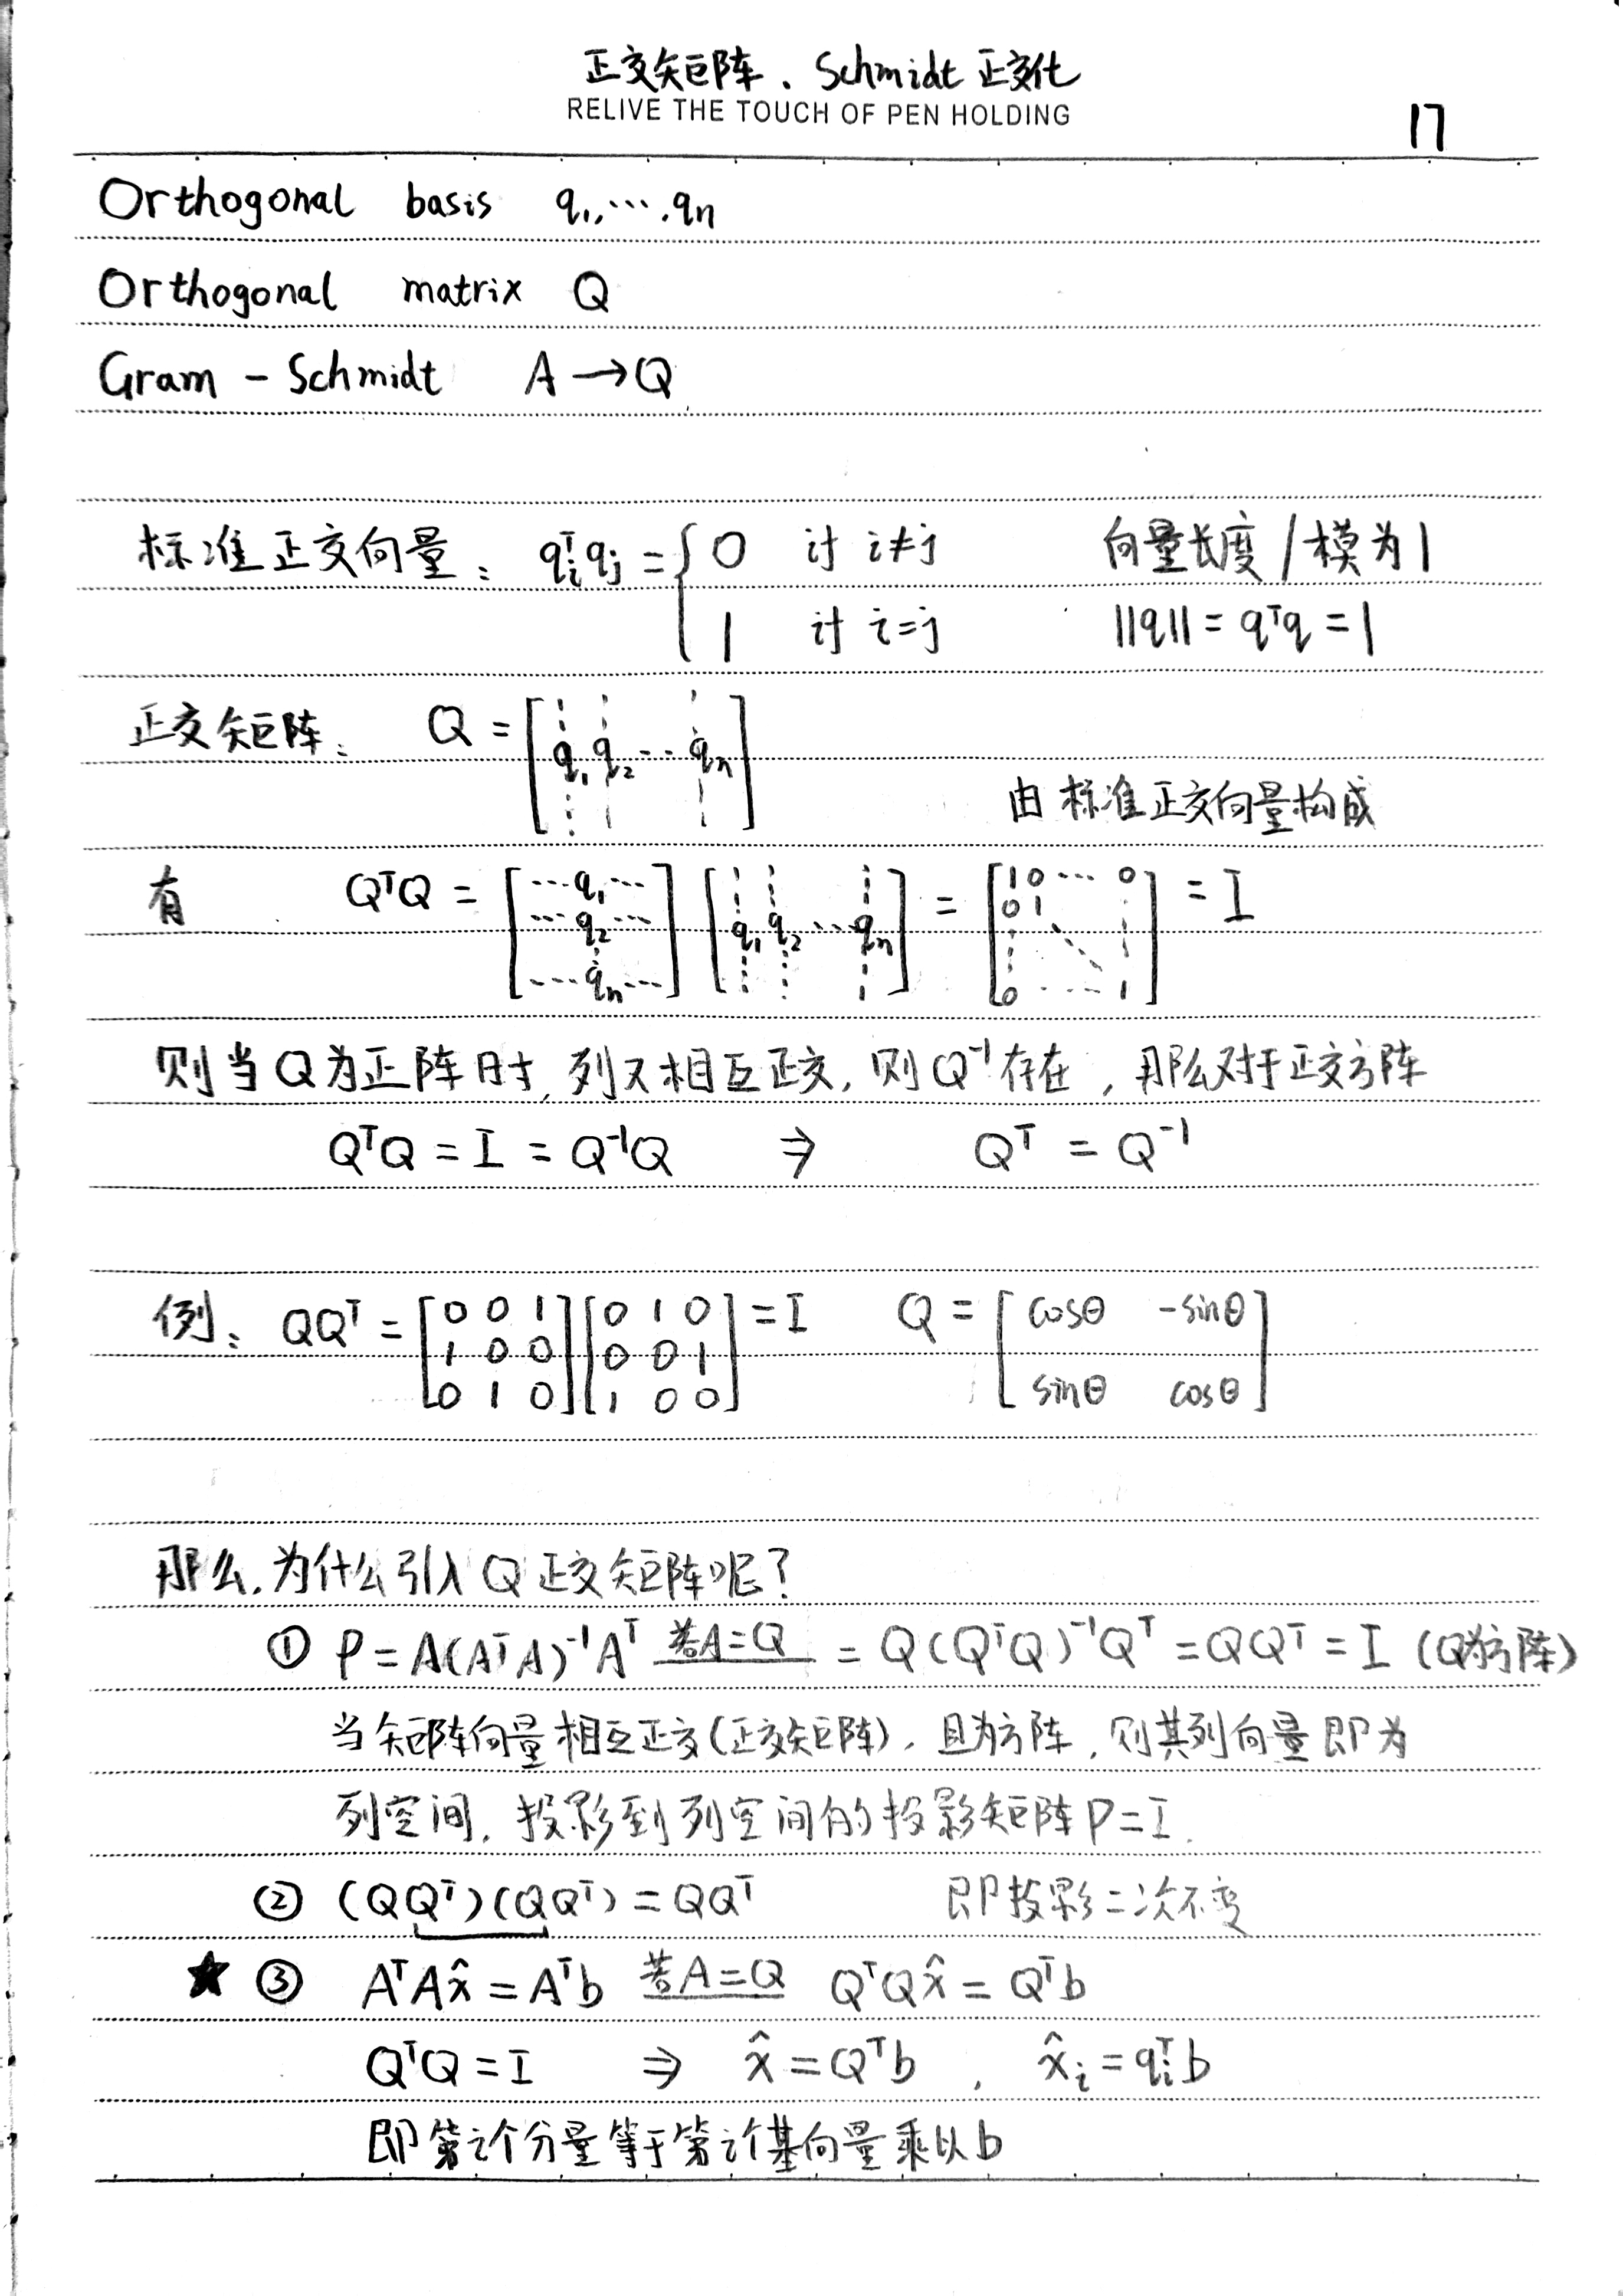 正交矩阵、Schmidt 正交化
RELIVE THE TOUCH OF PEN HOLDING
17
Orthogonal basis q₁,…,qₙ
Orthogonal matrix Q
Gram - Schmidt A → Q
标准正交向量: qᵢᵀqⱼ = { 0 讨 i≠j 向量长度/模为1
1 讨 i=j ||q|| = qᵀq = 1
正交矩阵: Q = [q₁ q₂ … qₙ]
由标准正交向量构成
有 QᵀQ = [… q₁ … … q₂ … ⋮ … qₙ …] [q₁ q₂ … qₙ] = [1 0 … 0 0 1 ⋮ ⋱ ⋮ 0 … 1] = I
则当Q为正阵时,列又相互正交,则Q⁻¹存在,那么对于正交方阵
QᵀQ = I = Q⁻¹Q ⇒ Qᵀ = Q⁻¹
例: QQᵀ = [0 0 1; 1 0 0; 0 1 0] [0 1 0; 0 0 1; 1 0 0] = I Q = [cosθ -sinθ; sinθ cosθ]
那么,为什么引入Q正交矩阵呢?
① P = A(AᵀA)⁻¹Aᵀ 若A=Q = Q(QᵀQ)⁻¹Qᵀ = QQᵀ = I (Q为方阵)
当矩阵向量相互正交(正交矩阵),且为方阵,则其列向量即为
列空间,投影到列空间的投影矩阵P=I.
② (QQᵀ)(QQᵀ) = QQᵀ 即投影二次不变
★ ③ AᵀAx̂ = Aᵀb 若A=Q QᵀQx̂ = Qᵀb
QᵀQ = I ⇒ x̂ = Qᵀb , x̂ᵢ = qᵢᵀb
即第i个分量等于第i个基向量乘以b